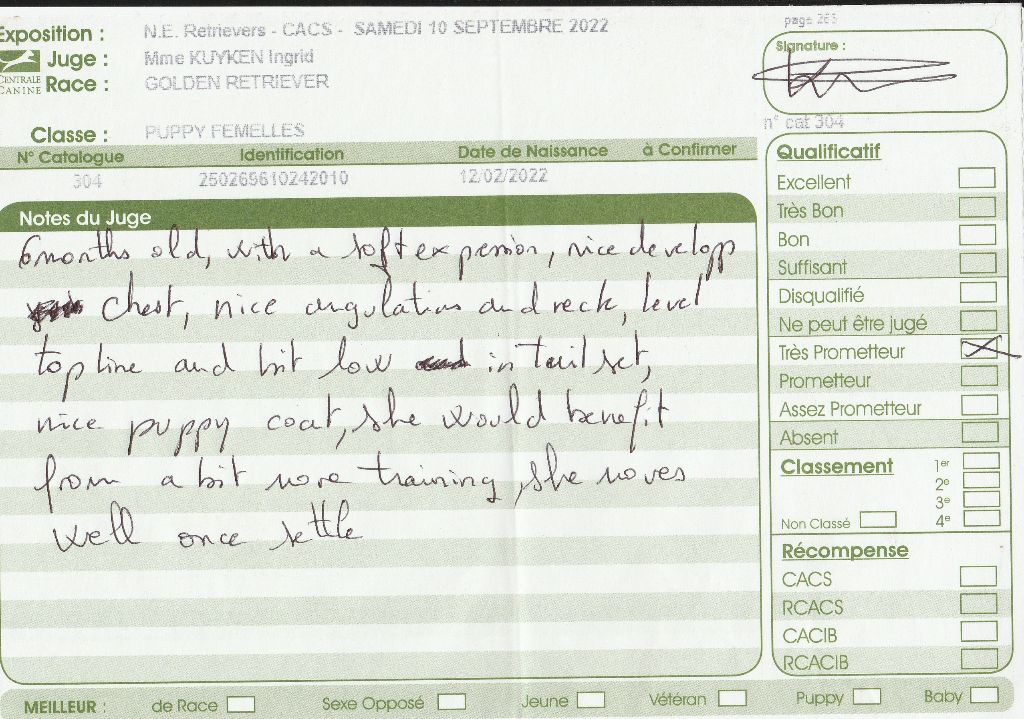 Exposition : N.E. Retrievers - CACS - SAMEDI 10 SEPTEMBRE 2022
page 263
Signature :
CENTRALE CANINE
Juge : Mme KUYKEN Ingrid
Race : GOLDEN RETRIEVER
n° cat 304
Classe : PUPPY FEMELLES
N° Catalogue Identification Date de Naissance à Confirmer
304 250269610242010 12/02/2022
Notes du Juge
6 months old, with a soft expression, nice develop
chest, nice angulation and neck, level
topline and bit low in tail set,
nice puppy coat, she would benefit
from a bit more training, she moves
well once settle
Qualificatif
Excellent
Très Bon
Bon
Suffisant
Disqualifié
Ne peut être jugé
Très Prometteur X
Prometteur
Assez Prometteur
Absent
Classement 1er
2e
3e
Non Classé 4e
Récompense
CACS
RCACS
CACIB
RCACIB
MEILLEUR : de Race Sexe Opposé Jeune Vétéran Puppy Baby